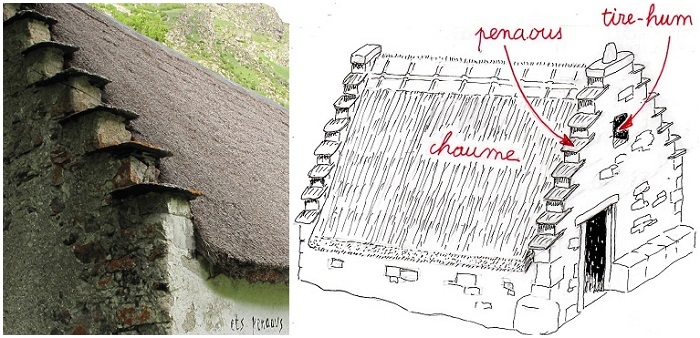 ets penaous
penaous
tire-hum
chaume